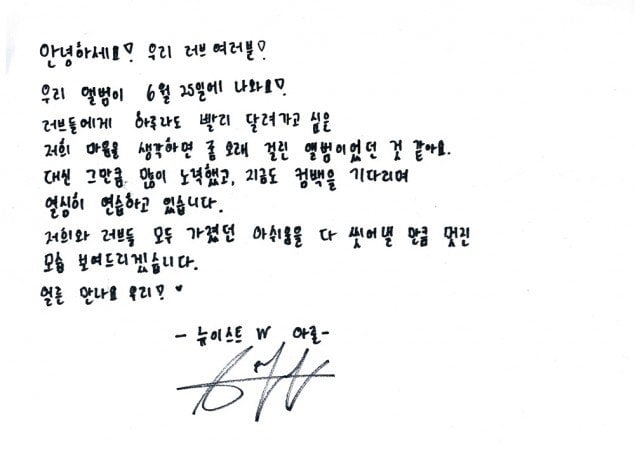 안녕하세요! 우리 러브 여러분!
우리 앨범이 6월 25일에 나와요!
러브들에게 하루라도 빨리 달려가고 싶은
저희 마음을 생각하면 좀 오래 걸린 앨범이었던 것 같아요.
대신 그만큼 많이 노력했고, 지금도 컴백을 기다리며
열심히 연습하고 있습니다.
저희와 러브들 모두 가졌던 아쉬움을 다 씻어낼 만큼 멋진
모습 보여드리겠습니다.
얼른 만나요 우리! ♥
- 뉴이스트 W 아론-